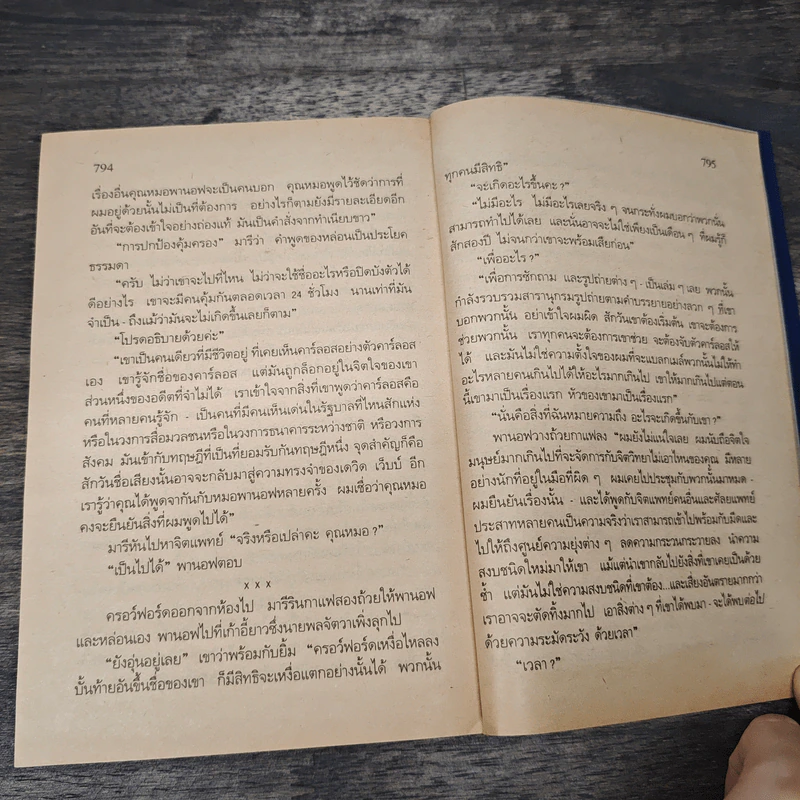 794
เรื่องอื่นคุณหมอพานอฟจะเป็นคนบอก คุณหมอพูดไว้ชัดว่าการที่
ผมอยู่ด้วยนั้นไม่เป็นที่ต้องการ อย่างไรก็ตามยังมีรายละเอียดอีก
อันที่จะต้องเข้าใจอย่างถ่องแท้ มันเป็นคำสั่งจากทำเนียบขาว”
“การปกป้องคุ้มครอง” มารีว่า คำพูดของหล่อนเป็นประโยค
ธรรมดา
“ครับ ไม่ว่าเขาจะไปที่ไหน ไม่ว่าจะใช้ชื่ออะไรหรือปิดบังตัวได้
ดีอย่างไร เขาจะมีคนคุ้มกันตลอดเวลา 24 ชั่วโมง นานเท่าที่มัน
จำเป็น - ถึงแม้ว่ามันจะไม่เกิดขึ้นเลยก็ตาม”
“โปรดอธิบายด้วยค่ะ”
“เขาเป็นคนเดียวที่มีชีวิตอยู่ ที่เคยเห็นคาร์ลอสอย่างตัวคาร์ลอส
เอง เขารู้จักชื่อของคาร์ลอส แต่มันถูกล็อกอยู่ในจิตใจของเขา
ส่วนหนึ่งของอดีตที่จำไม่ได้ เราเข้าใจจากสิ่งที่เขาพูดว่าคาร์ลอสคือ
คนที่หลายคนรู้จัก - เป็นคนที่มีคนเห็นเด่นในรัฐบาลที่ไหนสักแห่ง
หรือในวงการสื่อมวลชนหรือในวงการธนาคารระหว่างชาติ หรือวงการ
สังคม มันเข้ากับทฤษฎีที่เป็นที่ยอมรับกันทฤษฎีหนึ่ง จุดสำคัญก็คือ
สักวันชื่อเสียงนั้นอาจจะกลับมาสู่ความทรงจำของเดวิด เว็บบ์ อีก
เรารู้ว่าคุณได้พูดจากันกับหมอพานอฟหลายครั้ง ผมเชื่อว่าคุณหมอ
คงจะยืนยันสิ่งที่ผมพูดไปได้”
มารีหันไปหาจิตแพทย์ “จริงหรือเปล่าคะ คุณหมอ?”
“เป็นไปได้” พานอฟตอบ
x x x
ครอว์ฟอร์ดออกจากห้องไป มารีรินกาแฟสองถ้วยให้พานอฟ
และหล่อนเอง พานอฟไปที่เก้าอี้ยาวซึ่งนายพลจัตวาเพิ่งลุกไป
“ยังอุ่นอยู่เลย” เขาว่าพร้อมกับยิ้ม “ครอว์ฟอร์ดเหงื่อไหลลง
บั้นท้ายอันขึ้นชื่อของเขา ก็มีสิทธิจะเหงื่อแตกอย่างนั้นได้ พวกนั้น
795
ทุกคนมีสิทธิ”
“จะเกิดอะไรขึ้นคะ?”
“ไม่มีอะไร ไม่มีอะไรเลยจริง ๆ จนกระทั่งผมบอกว่าพวกนั้น
สามารถทำไปได้เลย และนั่นอาจจะไม่ใช่เพียงเป็นเดือน ๆ ที่ผมรู้ก็
สักสองปี ไม่จนกว่าเขาจะพร้อมเสียก่อน”
“เพื่ออะไร?”
“เพื่อการซักถาม และรูปถ่ายต่าง ๆ - เป็นเล่ม ๆ เลย พวกนั้น
กำลังรวบรวมสารานุกรมรูปถ่ายตามคำบรรยายอย่างลวก ๆ ที่เขา
บอกพวกนั้น อย่าเข้าใจผมผิด สักวันเขาต้องเริ่มต้น เขาจะต้องการ
ช่วยพวกนั้น เราทุกคนจะต้องการเขาช่วย จะต้องจับตัวคาร์ลอสให้
ได้ และมันไม่ใช่ความตั้งใจของผมที่จะแบลกเมล์พวกนั้นไม่ให้ทำ
อะไรหลายคนเกินไปได้ให้อะไรมากเกินไป เขาให้มากเกินไปแต่ตอน
นี้เขามาเป็นเรื่องแรก หัวของเขามาเป็นเรื่องแรก”
“นั่นคือสิ่งที่ฉันหมายความถึง อะไรจะเกิดขึ้นกับเขา?”
พานอฟวางถ้วยกาแฟลง “ผมยังไม่แน่ใจเลย ผมนับถือจิตใจ
มนุษย์มากเกินไปที่จะจัดการกับจิตวิทยาไม่เอาไหนของคุณ มีหลาย
อย่างนักที่อยู่ในมือที่ผิด ๆ ผมเคยไปประชุมกับพวกนั้นมาหมด -
ผมยืนยันเรื่องนั้น - และได้พูดกับจิตแพทย์คนอื่นและศัลยแพทย์
ประสาทหลายคนเป็นความจริงว่าเราสามารถเข้าไปพร้อมกับมีดและ
ไปให้ถึงศูนย์ความยุ่งต่าง ๆ ลดความกระวนกระวายลง นำความ
สงบชนิดใหม่มาให้เขา แม้แต่นำเขากลับไปยังสิ่งที่เขาเคยเป็นด้วย
ซ้ำ แต่มันไม่ใช่ความสงบชนิดที่เขาต้อง...และเสี่ยงอันตรายมากกว่า
เราอาจจะตัดทิ้งมากไป เอาสิ่งต่าง ๆ ที่เขาได้พบมา - จะได้พบต่อไป
ด้วยความระมัดระวัง ด้วยเวลา”
“เวลา?”